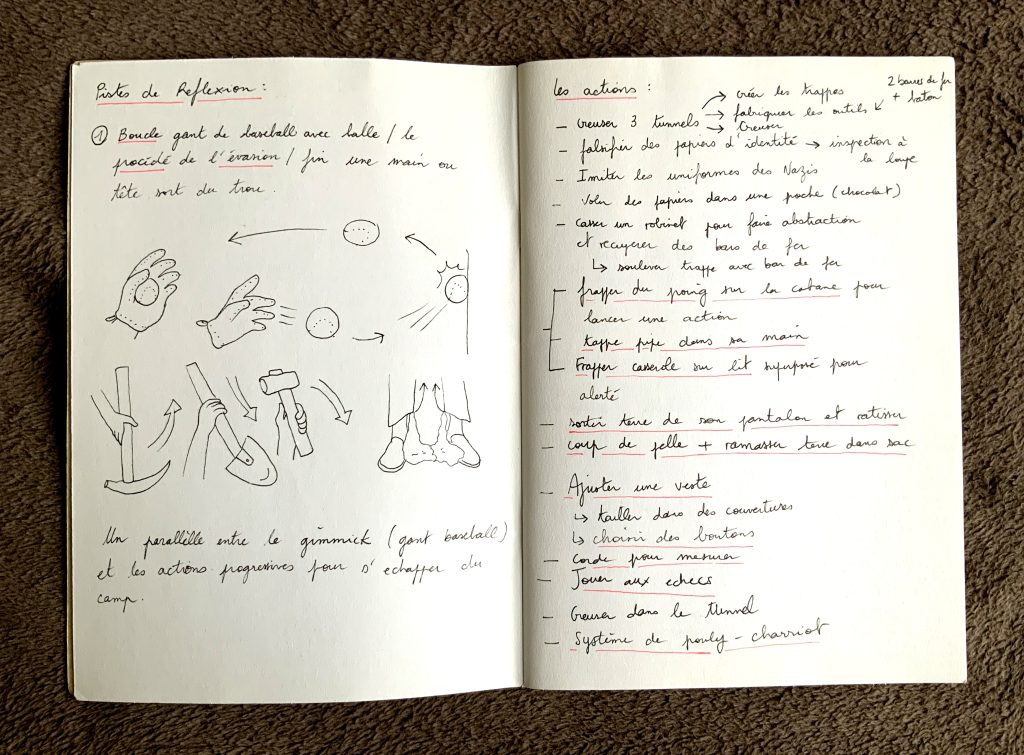 Pistes de Reflexion :
① Boucle gant de baseball avec balle / le
procédé de l'évasion / fin une main ou
tête sort du trou.
Un parallèlle entre le gimmick (gant baseball)
et les actions progressives pour s'echapper du
camp.
les actions :
2 barres de fer
+ baton
→ créer les trappes
– Creuser 3 tunnels → fabriquer les outils ↙
→ Creuser
– falsifier des papiers d'identité → inspection à
la loupe
– Imiter les uniformes des Nazis
– voler des papiers dans une poche (chocolat)
– casser un robinet pour faire abstraction
et recuperer des bars de fer
↳ soulever trappe avec bar de fer
frapper du poing sur la cabane pour
lancer une action
– tappe pipe dans sa main
Frapper casserole sur lit superposé pour
alerté
– sortir terre de son pantalon et ratisser
– coup de pelle + ramasser terre dans sac
– Ajuster une veste
↳ tailler dans des couvertures
↳ choisir des boutons
– corde pour mesurer
– Jouer aux echecs
– Creuser dans le tunnel
– Système de pouly - charriot